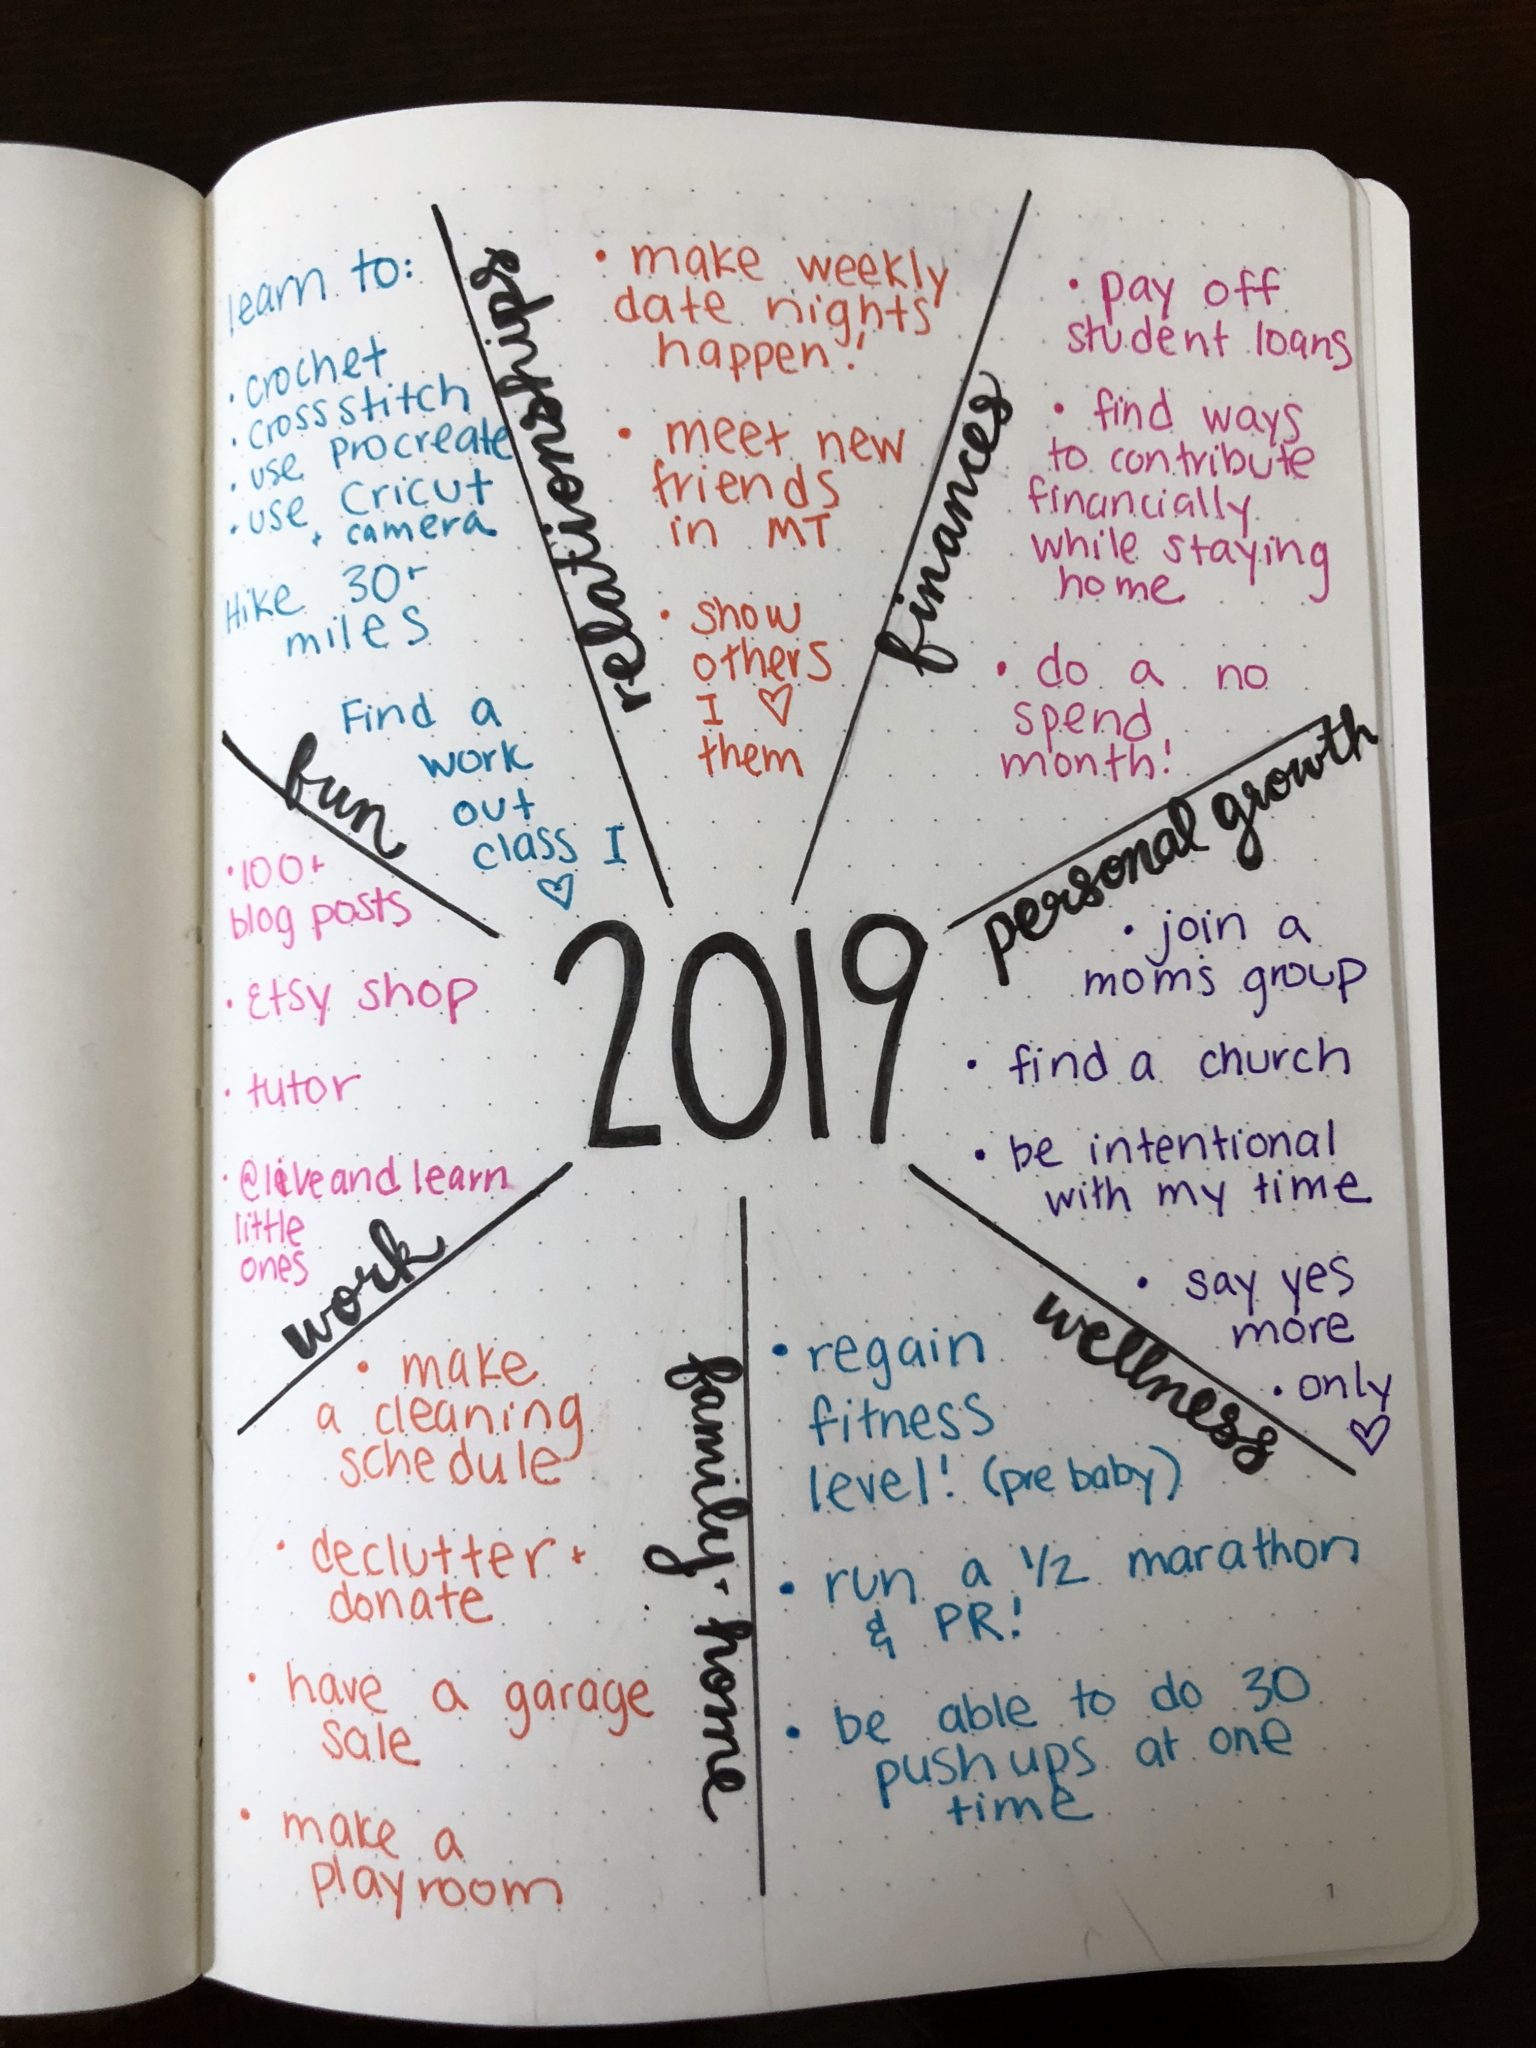 learn to:
• crochet
• cross stitch
• use procreate
• use Cricut
+ camera
Hike 30+
miles
Find a
work
out
class I
♡
fun
relationships
• make weekly
date nights
happen!
• meet new
friends
in MT
• show
others
I ♡
them
finances
• pay off
student loans
• find ways
to contribute
financially
while staying
home
• do a no
spend
month!
personal growth
• join a
moms group
• find a church
• be intentional
with my time
• say yes
more
• only
♡
2019
• 100+
blog posts
• Etsy shop
• tutor
• @liveandlearn
little
ones
work
• make
a cleaning
schedule
• declutter +
donate
• have a garage
sale
• make a
playroom
family + home
wellness
• regain
fitness
level! (pre baby)
• run a 1/2 marathon
& PR!
• be able to do 30
push ups at one
time
1